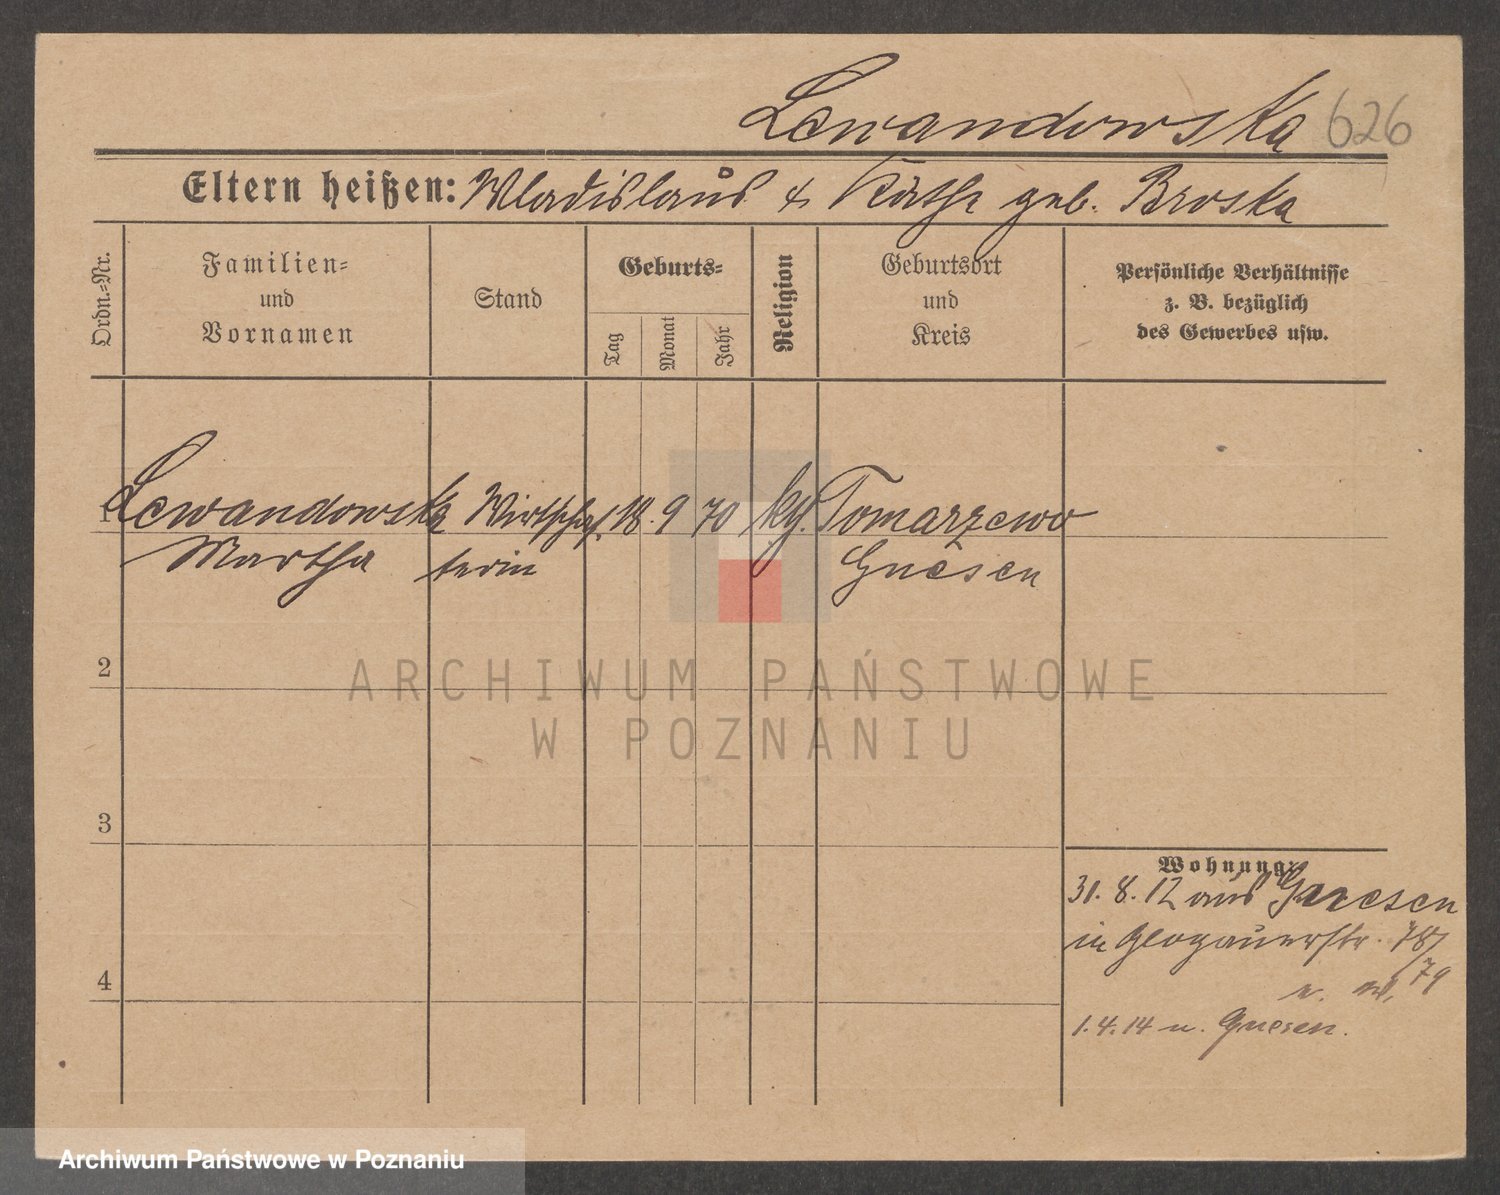 Lewandowska 626
Eltern heißen: Wladislaus & Käthe geb. Broska
Ordn.-Nr.
Familien-
und
Vornamen
Stand
Geburts-
Tag
Monat
Jahr
Religion
Geburtsort
und
Kreis
Persönliche Verhältnisse
z. B. bezüglich
des Gewerbes usw.
1 Lewandowska Wirtschaf. 18. 9 70 kg. Tomarzewo
Martha terin Gnesen
ARCHIWUM PAŃSTWOWE
W POZNANIU
2
3
4
Wohnung:
31. 8. 12 aus Gnesen
in Glogauerstr. 78/
79
1. 4. 14 n. Gnesen.
Archiwum Państwowe w Poznaniu